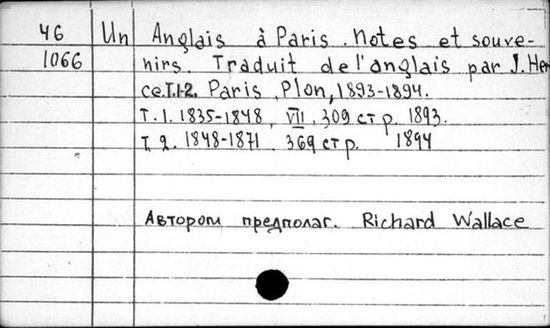 46 Un Anglais à Paris. Notes et souve-
1066 nirs. Traduit de l'anglais par J. Her-
ce. T.1-2. Paris, Plon, 1893-1894.
T. 1. 1835-1848, VII, 309 стр. 1893.
T. 2. 1848-1871. 369 стр. 1894
Автором предполаг. Richard Wallace